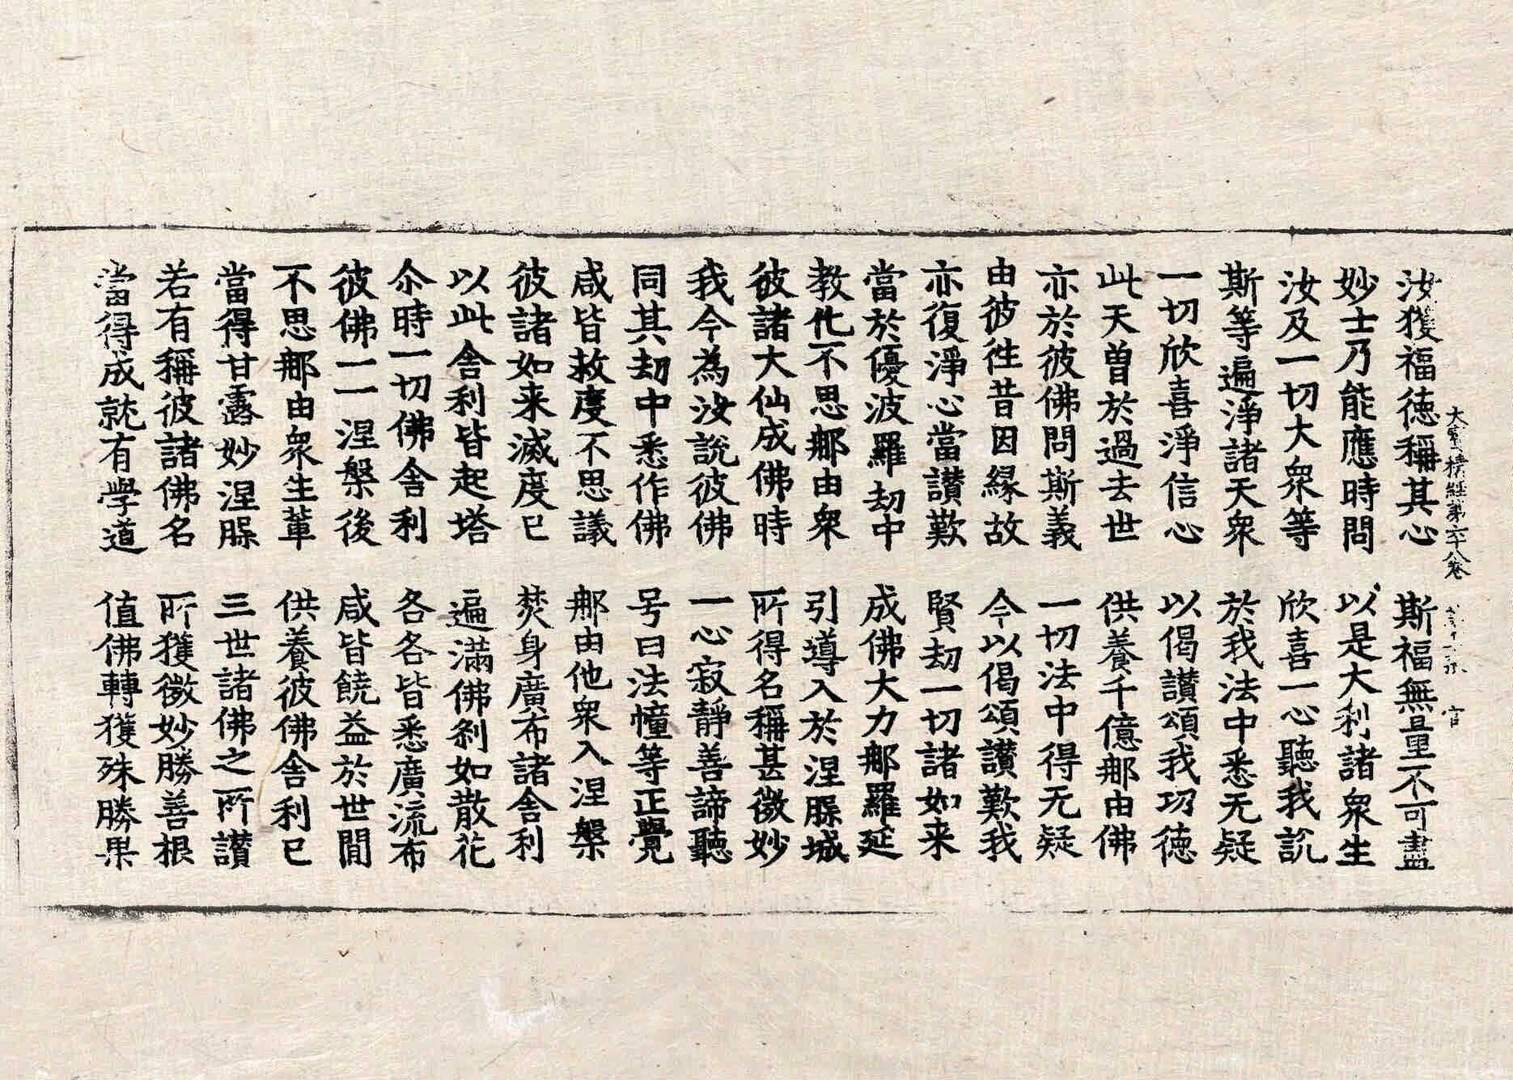 大寶積經第六十八卷
官
汝獲福德稱其心 斯福無量不可盡
妙士乃能應時問 以是大利諸衆生
汝及一切大衆等 欣喜一心聽我說
斯等遍淨諸天衆 於我法中悉无疑
一切欣喜淨信心 以偈讃頌我功德
此天曽於過去世 供養千億那由佛
亦於彼佛問斯義 一切法中得无疑
由彼往昔因縁故 今以偈頌讃歎我
亦復淨心當讃歎 賢劫一切諸如来
當於優波羅劫中 成佛大力那羅延
教化不思那由衆 引導入於涅槃城
彼諸大仙成佛時 所得名稱甚微妙
我今為汝說彼佛 一心寂靜善諦聽
同其劫中悉作佛 号曰法幢等正覺
咸皆救度不思議 那由他衆入涅槃
彼諸如来滅度已 焚身廣布諸舎利
以此舎利皆起塔 遍滿佛刹如散花
尒時一切佛舎利 各各皆悉廣流布
彼佛一一涅槃後 咸皆饒益於世間
不思那由衆生軰 供養彼佛舎利已
當得甘露妙涅槃 三世諸佛之所讃
若有稱彼諸佛名 所獲微妙勝善根
當得成就有学道 值佛轉獲殊勝果